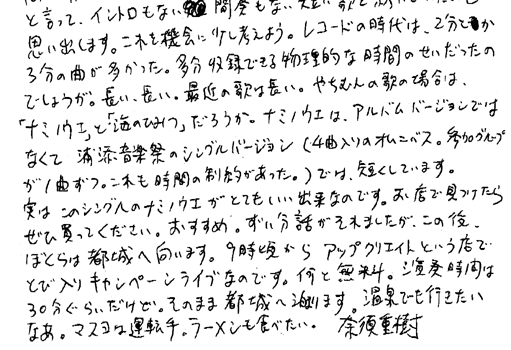 と言って、イントロもない 間奏もない短い歌
思い出します。これを機会に少し考えよう。レコードの時代は、2分とか
3分の曲が多かった。多分収録できる物理的な時間のせいだったの
でしょうが。長い、長い。最近の歌は長い。やちむんの歌の場合は、
「ナミノウエ」と「海のひみつ」だろうか。ナミノウエは、アルバムバージョンでは
なくて 浦添音楽祭のシングルバージョン(4曲入りのオムニバス。参加グループ
が1曲ずつ。これも時間の制約があった。)では、短くしています。
実はこのシングルのナミノウエがとてもいい出来なのです。お店で見つけたら
ぜひ買ってください。おすすめ。ずい分話がそれましたが、この後、
ぼくらは都城へ向います。9時頃から アップクリエイトという店で
とび入りキャンペーンライブなのです。何と無料。演奏時間は
30分ぐらいだけど。そのまま都城へ泊ります。温泉でも行きたい
なあ。マスヨは運転手。ラーメンも食べたい。 奈須重樹